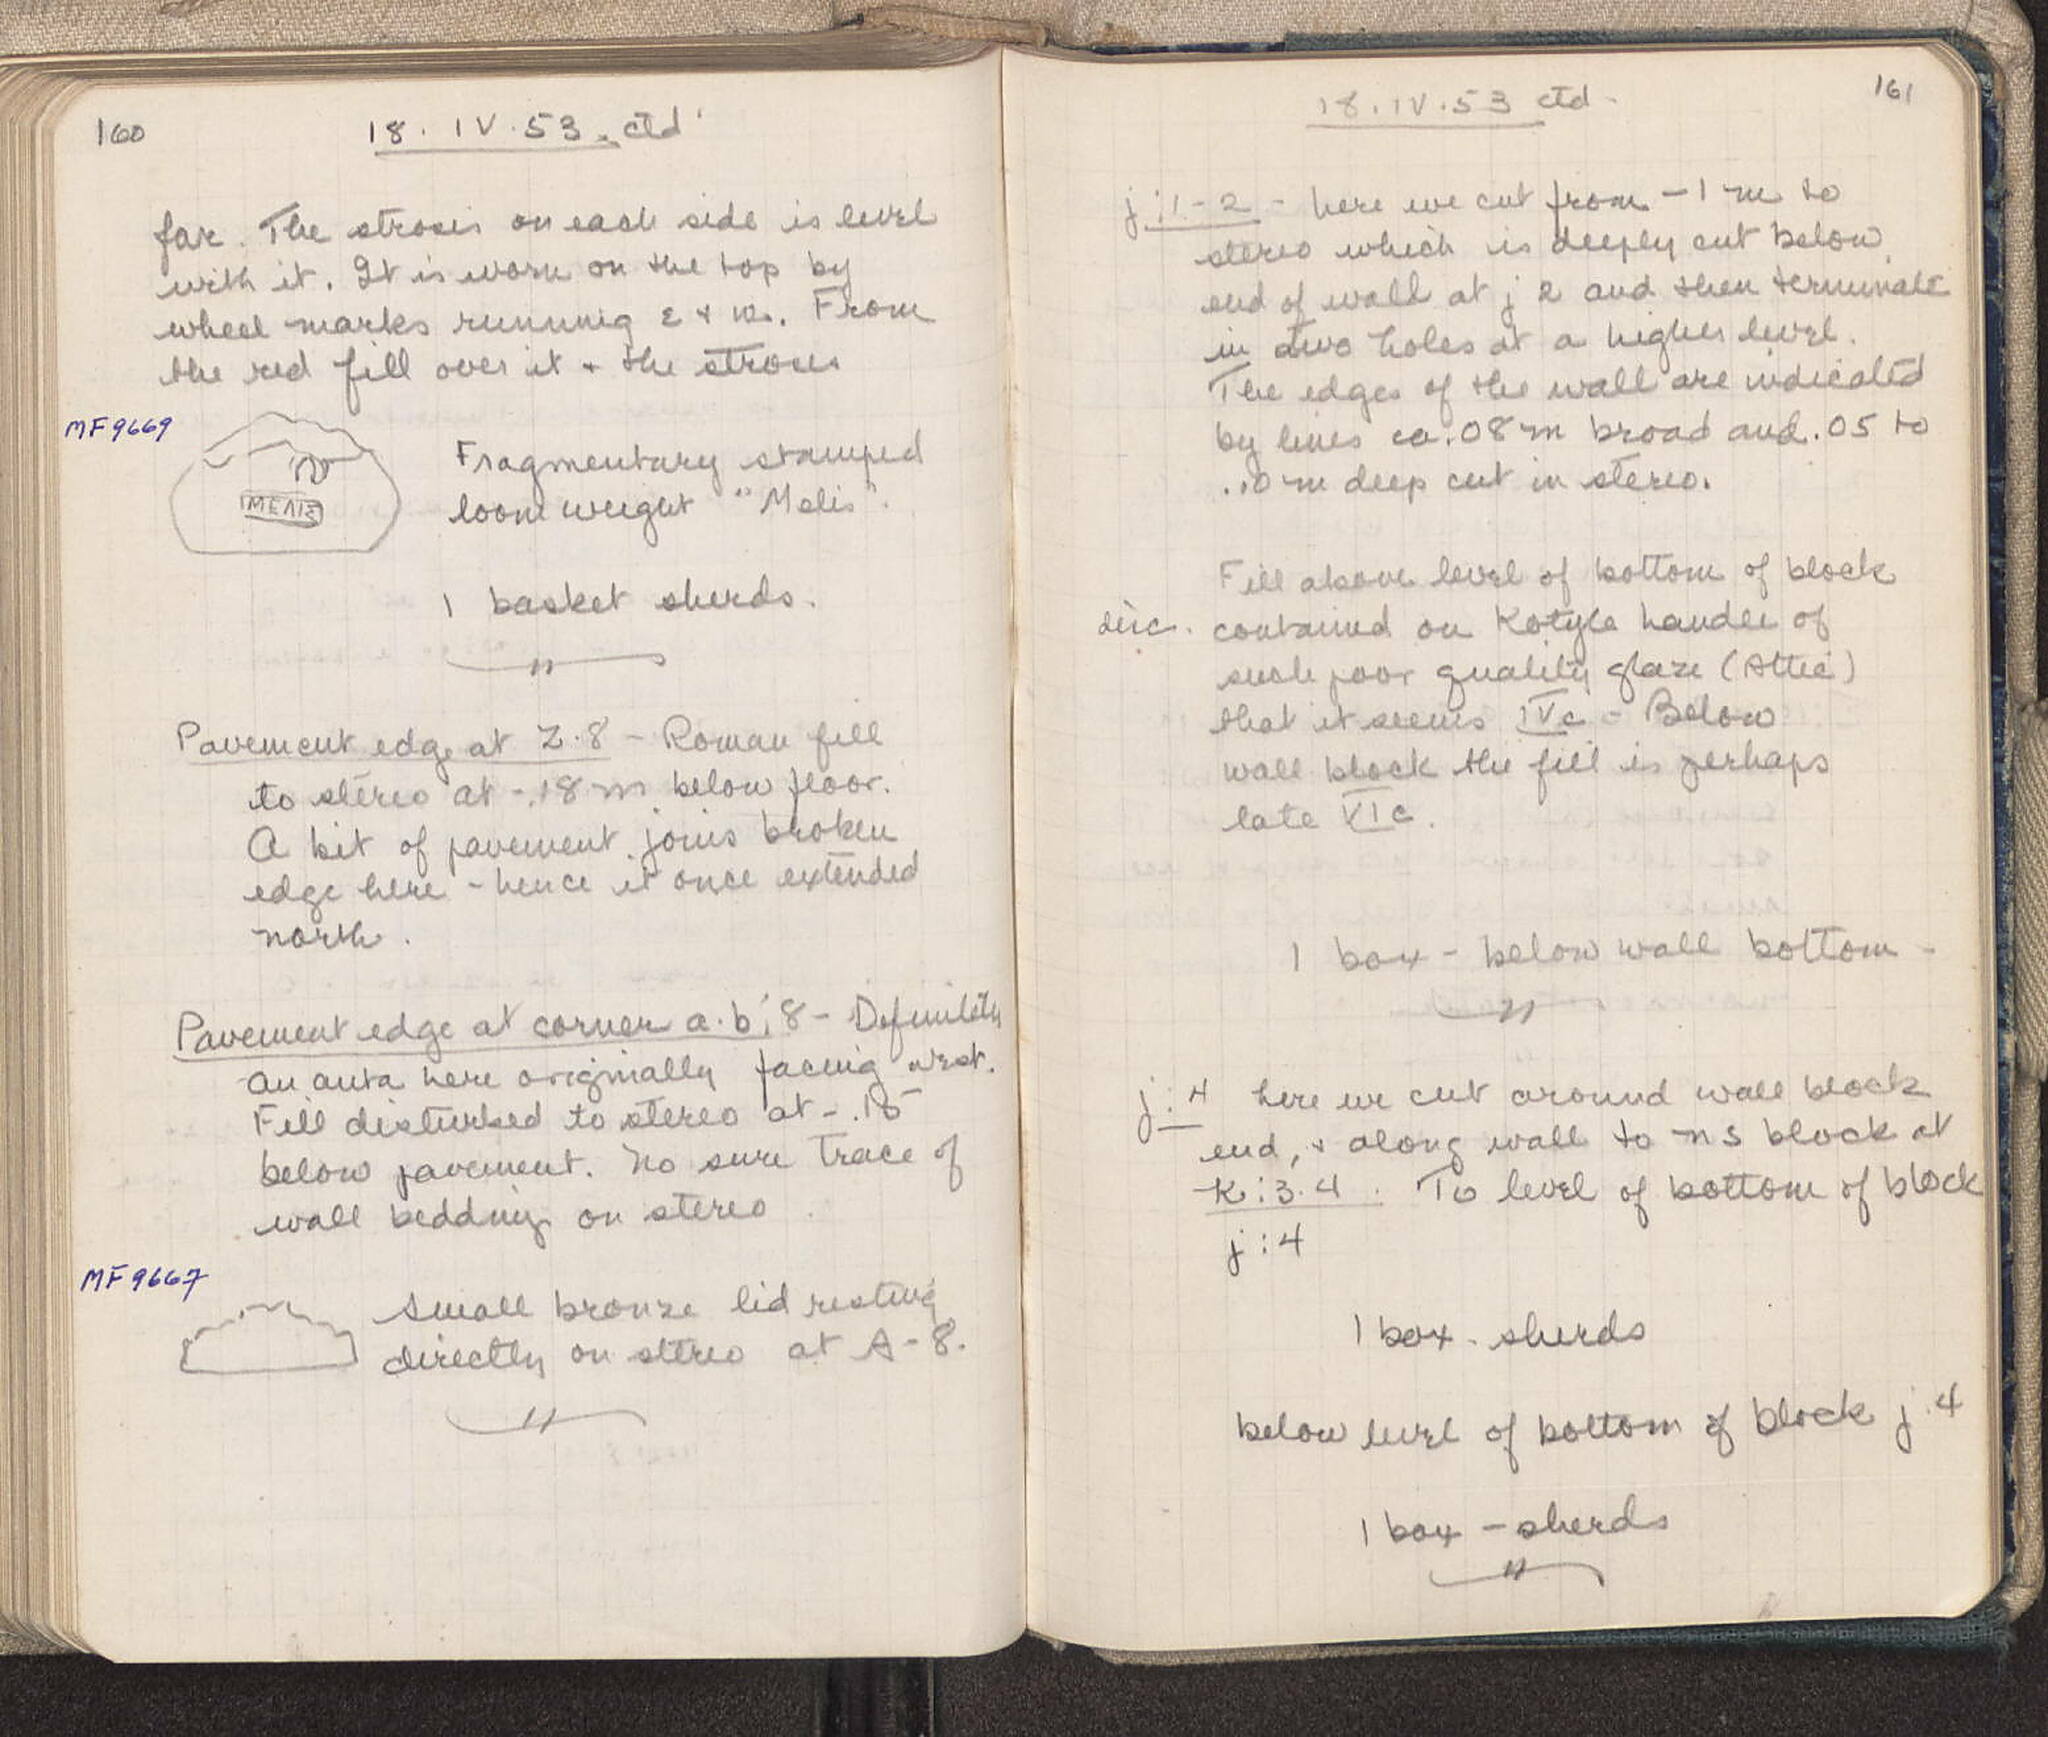 160
18. IV. 53. ctd
far. The strosis on each side is level
with it. It is worn on the top by
wheel marks running E + W. From
the red fill over it + the stroses
MF9669
ΜΕΛΙΣ
Fragmentary stamped
loom weight "Melis".
1 basket sherds.
Pavement edge at Z·8 - Roman fill
to stereo at -.18 m below floor.
A bit of pavement joins broken
edge here - hence it once extended
north.
Pavement edge at corner a·b;8 - Definitely
an anta here originally facing west.
Fill disturbed to stereo at -.15
below pavement. No sure trace of
wall bedding on stereo.
MF9667
Small bronze lid resting
directly on stereo at A-8.
161
18. IV. 53 ctd -
j:1-2 - here we cut from -1 m to
stereo which is deeply cut below
end of wall at j 2 and then terminate
in two holes at a higher level.
The edges of the wall are indicated
by lines ca .08 m broad and .05 to
.10 m deep cut in stereo.
Fill above level of bottom of block
disc. contained on Kotyle handle of
such poor quality glaze (Attic)
that it seems IVc - Below
wall block the fill is perhaps
late VIc.
1 box - below wall bottom -
j:4 here we cut around wall block
end, + along wall to NS block at
K:3.4. To level of bottom of block
j:4
1 box - sherds
below level of bottom of block j.4
1 box - sherds